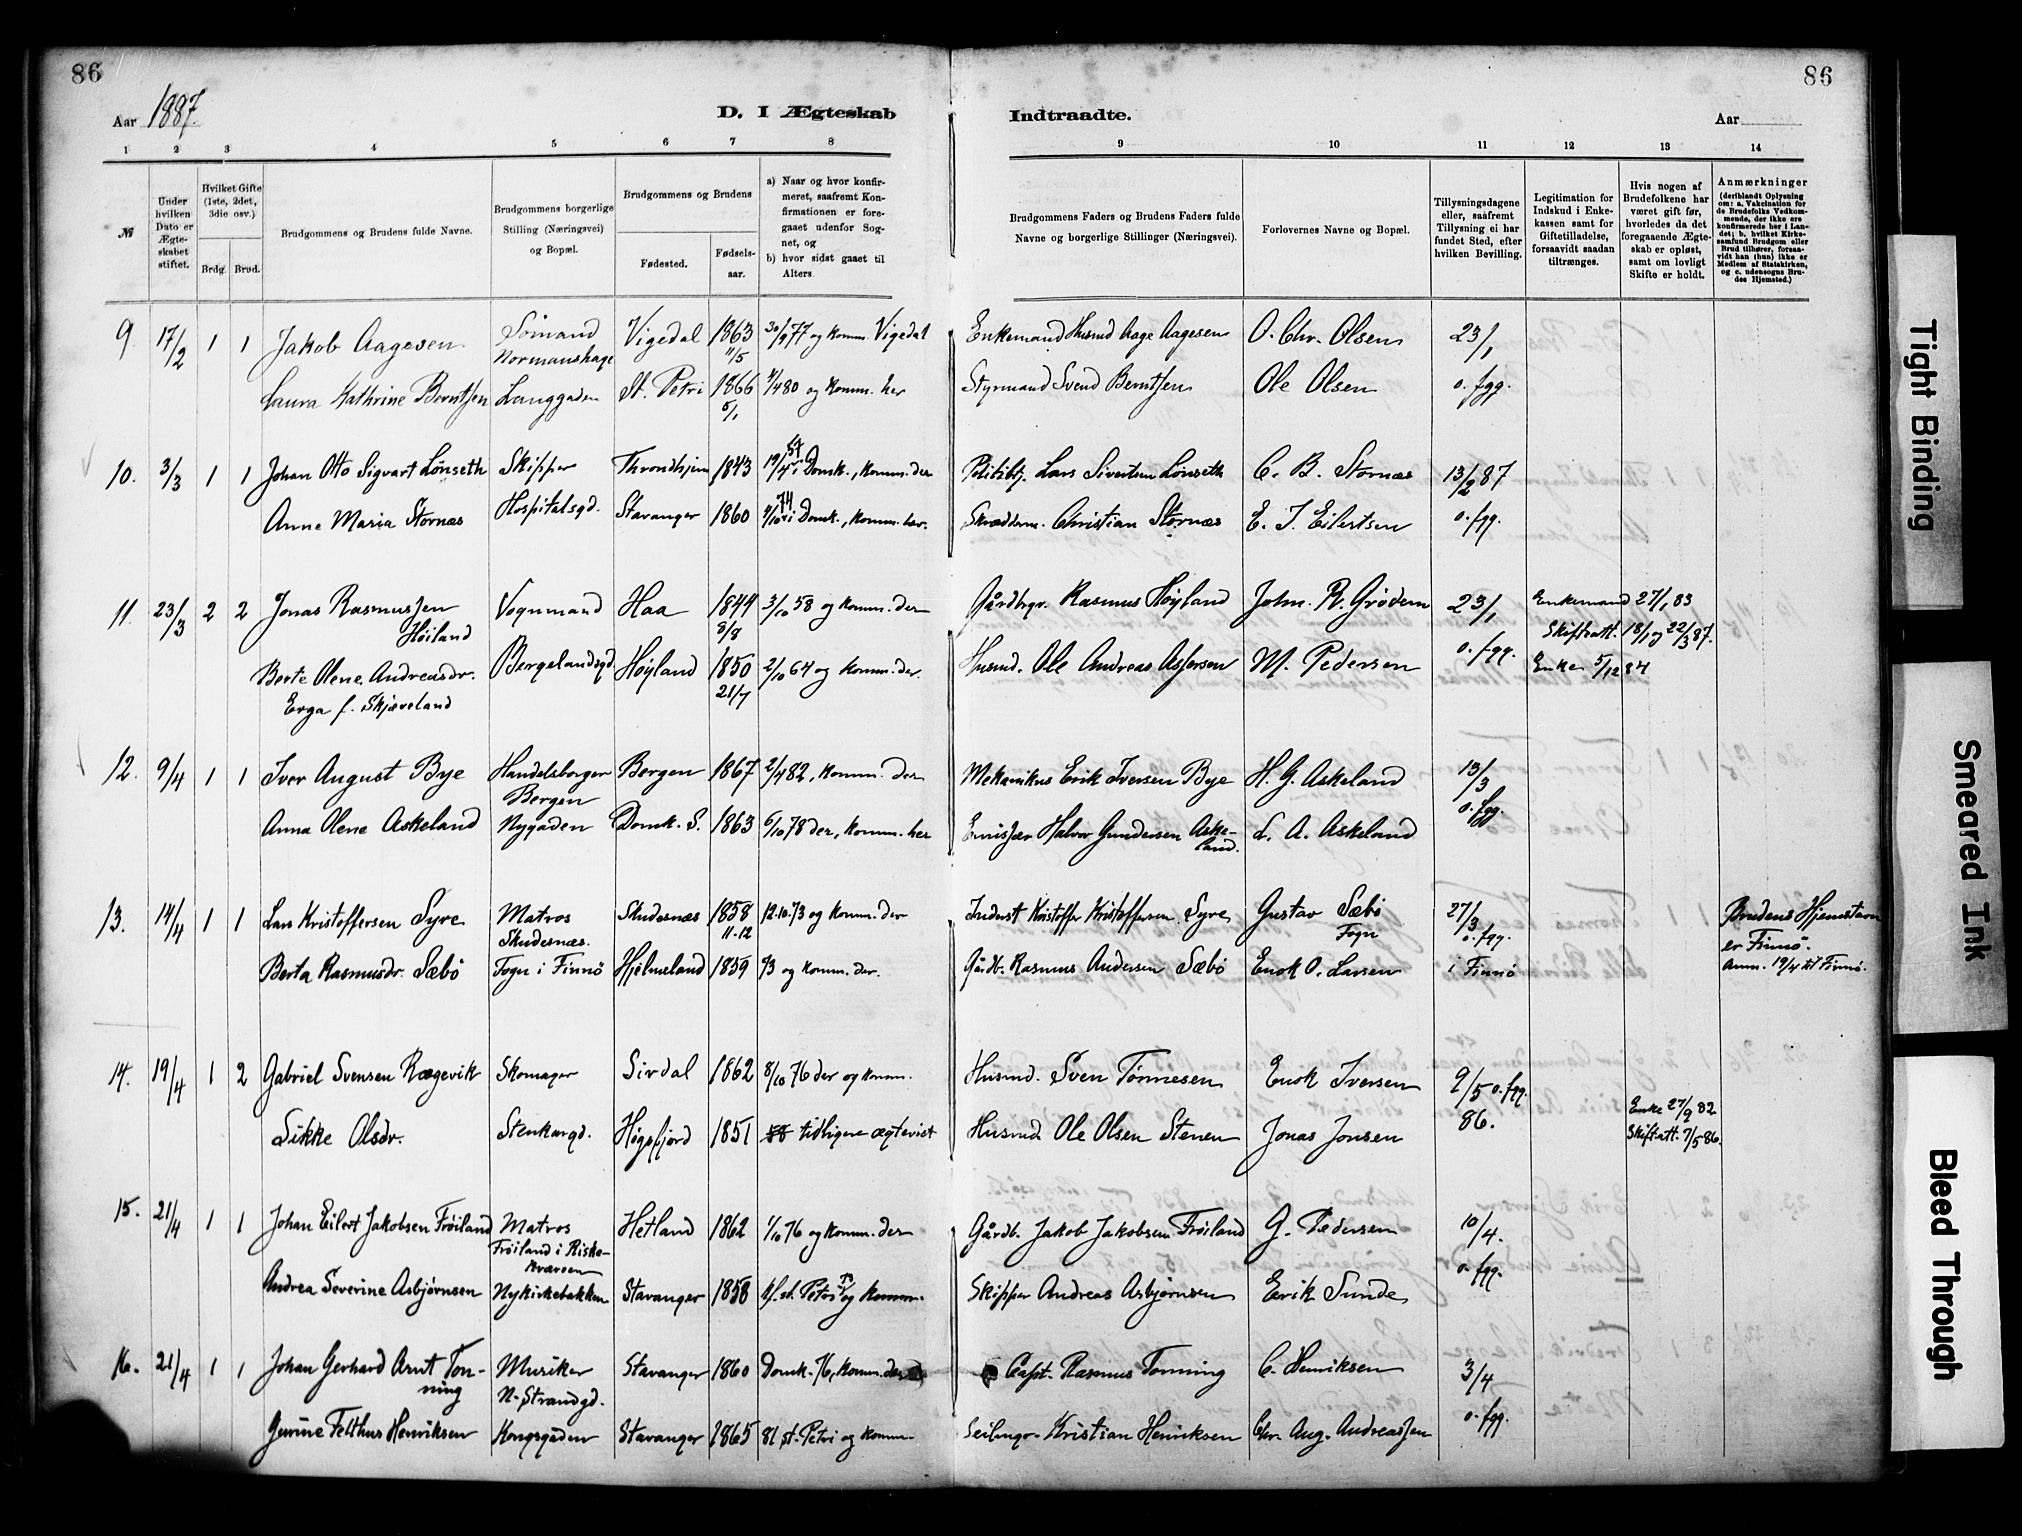 86
86
Aar 1887.
D. I Ægteskab
Indtraadte.
Aar
1 2 3 4 5 6 7 8 9 10 11 12 13 14
№
Under hvilken Dato er Ægteskabet stiftet.
Hvilket Gifte (1ste, 2det, 3die osv.)
Brdg. Brud.
Brudgommens og Brudens fulde Navne.
Brudgommens borgerlige Stilling (Næringsvei) og Bopæl.
Brudgommens og Brudens
Fødested.
Fødselsaar.
a) Naar og hvor konfirmeret, saafremt Konfirmationen er foregaaet udenfor Sognet, og
b) hvor sidst gaaet til Alters.
Brudgommens Faders og Brudens Faders fulde Navne og borgerlige Stillinger (Næringsvei).
Forlovernes Navne og Bopæl.
Tillysningsdagene eller, saafremt Tillysning ei har fundet Sted, efter hvilken Bevilling.
Legitimation for Indskud i Enkekassen samt for Giftetilladelse, forsaavidt saadan tiltrænges.
Hvis nogen af Brudefolkene har været gift før, hvorledes da det foregaaende Ægteskab er opløst, samt om lovligt Skifte er holdt.
Anmærkninger
(deriblandt Oplysning om: a. Vakcination for de Brudefolks Vedkommende, der ikke ere konfirmerede her i Landet; b. hvilket Kirkesamfund Brudgom eller Brud tilhører, forsaavidt han (hun) ikke er Medlem af Statskirken, og c. udensogns Brudes Hjemsted.)
9 17/2 1 1 Jakob Aagesen Sömand Vigedal 1863 30/9 77 og komm. Vigedal Enkemand Husmd Aage Aagesen O. Chr. Olsen 23/1
Normanshage 11/5
Laura Kathrine Berntsen Langgaden St. Petri 1866 4/4 80 og komm. her Styrmand Svend Berntsen Ole Olsen o. fgg.
5/1
10. 3/3 1 1 Johan Otto Sigvart Lönseth Skipper Throndhjem 1843 19/4 57 i Domk., komm. der Politibtj. Lars Sivertsen Lönseth C. B. Stornæs 13/2 87
Anne Maria Stornæs Hospitalsgd. Stavanger 1860 4/10 74 i Domk., komm. her. Skrædderm. Christian Stornæs E. J. Eilertsen o. fgg.
11. 23/3 2 2 Jonas Rasmussen Vognmand Haa 1844 3/10 58 og komm. der Gårdbrgr. Rasmus Höyland John. R. Gröden 23/1 Enkemand 27/1 83
Höiland 8/8 Skifteatt. 18/1 og 22/3 87.
Berte Olene Andreasdr. Bergelandsgd. Höyland 1850 2/10 64 og komm. der. Husmd. Ole Andreas Aslersen M. Pedersen o. fgg. Enke 5/12 84
Erga f. Skjæveland 21/7
12. 9/4 1 1 Iver August Bye Handelsborger Bergen 1867 2/4 82, komm. der Mekanikus Erik Iversen Bye H. G. Askeland 13/3
Bergen o. fgg.
Anna Olene Askeland Nygaden Domk. S. 1863 6/10 78 der, komm. her Halvor Gundersen Askeland. L. A. Askeland
13. 14/4 1 1 Lars Kristoffersen Syre Matros Skudesnæs 1858 12.10.73 og komm. der Inderst Kristoffer Kristoffersen Syre Gustav Sæbö 27/3 Brudens Hjemstavn
Skudesnæs. 11.12 Fogn o. fgg. er Finnö.
Berta Rasmusdr. Sæbö Fogn i Finnö Hjelmeland 1859 73 og komm. der. Gårdb. Rasmus Andersen Sæbö Enok O. Larsen i Finnö Anm. 19/4 til Finnö.
14. 19/4 1 2 Gabriel Svensen Rægevik Skomager Sirdal 1862 8/10 76 der og komm. Husmd. Sven Tönnesen Enok Iversen 9/5 o. fgg.
86. Enke 27/9 82
Likke Olsdr. Stenkargd. Högsfjord 1851 tidligere ægteviet Husmd Ole Olsen Stenen Jonas Jonsen Skifteatt. 7/5 86.
15. 21/4 1 1 Johan Eilert Jakobsen Fröiland Matros Hetland 1862 1/10 76 og komm. der Gårdb. Jakob Jakobsen Fröiland G. Pedersen 10/4.
Fröiland i Riskekværsen
Andrea Severine Asbjörnsen Nykirkebakken Stavanger 1858 St. Petri 73 og komm. Skipper Andreas Asbjörnsen Erik Sunde o. fgg.
16. 21/4 1 1 Johan Gerhard Arnt Tonning Musiker Stavanger 1860 Domk. 76, komm. der Capt. Rasmus Tonning C. Henriksen 3/4
N. Strandgd.
Gurine Felthus Henriksen Kongsgaden Stavanger 1865 81 St. Petri og komm. Seilmgr. Kristian Henriksen Chr. Aug. Andreassen o. fgg.
Tight Binding
Smeared Ink
Bleed Through